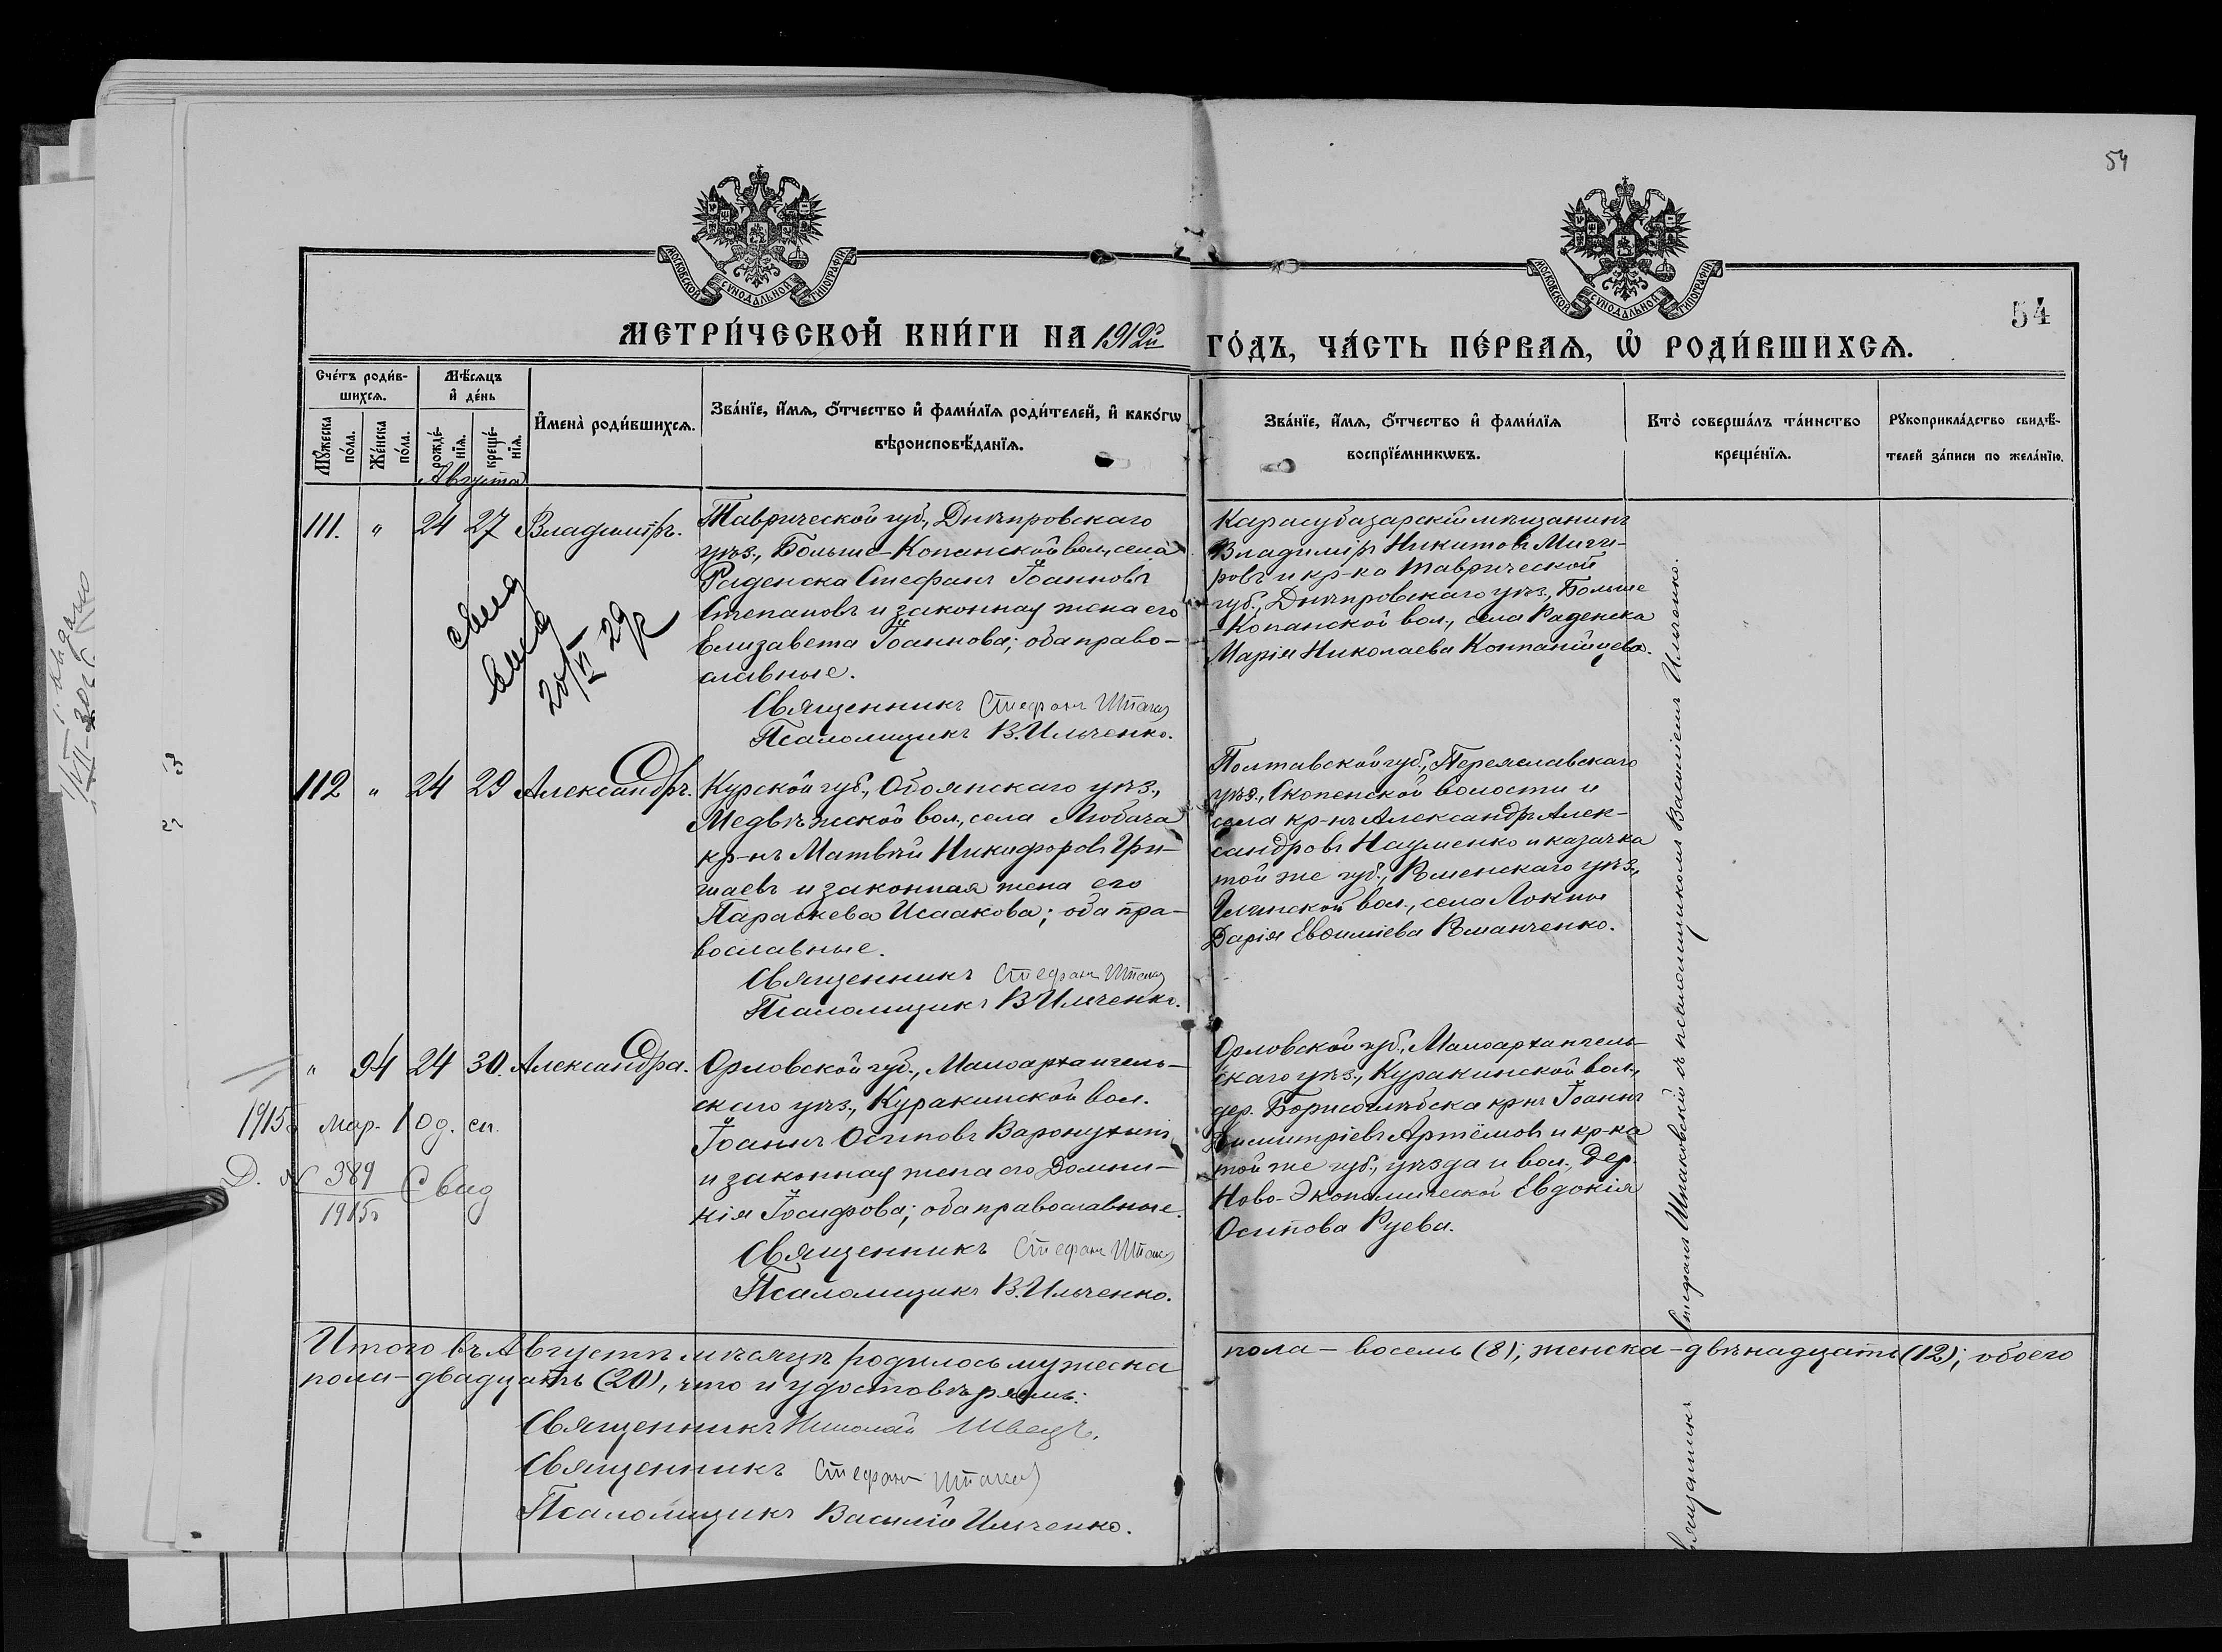 54
МОСКОВСКОЙ СѴНОДАЛЬНОЙ ТИПОГРАФІИ
МОСКОВСКОЙ СѴНОДАЛЬНОЙ ТИПОГРАФІИ
54
МЕТРИ́ЧЕСКОЙ КНИ́ГИ НА 1912й
ГО́ДЪ, ЧА́СТЬ ПЕ́РВАѦ, Ѡ҆ РОДИ́ВШИХСѦ.
Сче́тъ роди́в-
шихсѧ.
Мꙋ́жеска
по́ла.
Же́нска
по́ла.
Мѣ́сѧцъ
и҆ де́нь
рожде́-
нїѧ.
креще́-
нїѧ.
И҆мена̀ роди́вшихсѧ.
Зва́нїе, и҆́мѧ, ѻ҆́тчество и҆ фами́лїѧ роди́телей, и҆ како́гѡ
вѣроисповѣ́данїѧ.
Зва́нїе, и҆́мѧ, ѻ҆́тчество и҆ фами́лїѧ
воспрїе́мникѡвъ.
Кто̀ соверша́лъ та́инство
креще́нїѧ.
Рꙋкоприкла́дство свидѣ́-
телей за́писи по жела́нїю.
Августа
111. " 24 27 Владиміръ.
Таврической губ., Днѣпровскаго
уѣз., Больше-Копанской вол., села
Раденска Стефанъ Іоанновъ
Степановъ и законная жена его
Елизавета Іоаннова; оба право-
славные.
Священникъ Стефанъ
Псаломщикъ В. Ильченко.
Карасубазарскій мѣщанинъ
Владиміръ Никитовъ Мичи-
ровъ и кр-ка Таврической
губ., Днѣпровскаго уѣз., Больше
-Копанской вол., села Раденска
Марія Николаева Компанийцева.
20/VI 29 г
112 " 24 29 Александръ.
Курской губ., Обоянскаго уѣз.,
Медвѣжской вол., села Любача
кр-нъ Матвѣй Никифоровъ Гри-
шаевъ и законная жена его
Параскева Исаакова; оба пра-
вославные.
Священникъ Стефанъ
Псаломщикъ В Ильченко.
Полтавской губ., Переяславскаго
уѣз., волости и
села кр-нъ Александръ Алек-
сандровъ Науменко и казачка
той же губ., Роменскаго уѣз.,
вол., села Локни
Дарія Евфиміева Романченко.
" 94 24 30. Александра.
Орловской губ., Малоархангель-
скаго уѣз., Куракинской вол.
Іоаннъ Осиповъ
и законная жена его Домни-
кія Іосифова; оба православные.
Священникъ Стефанъ
Псаломщикъ В. Ильченко.
Орловской губ., Малоархангель-
скаго уѣз., Куракинской вол.,
дер. Борисоглѣбска кр-нъ Іоаннъ
Димитріевъ Артёмовъ и кр-ка
той же губ., уѣзда и вол., дер.
Ново-Экономической Евдокія
Осипова Руева.
1915 мар. 10 д. сп.
Д. N 389 Свид
1915
Священникъ Стефанъ Шпаковскій съ псаломщикомъ Василіемъ Ильченко.
Итого въ Августѣ мѣсяцѣ родилось мужеска
пола – восемь (8); женска – двѣнадцать (12); обоего
пола – двадцать (20), что и удостовѣряемъ:
Священникъ Николай Швецъ.
Священникъ Стефанъ
Псаломщикъ Василій Ильченко.